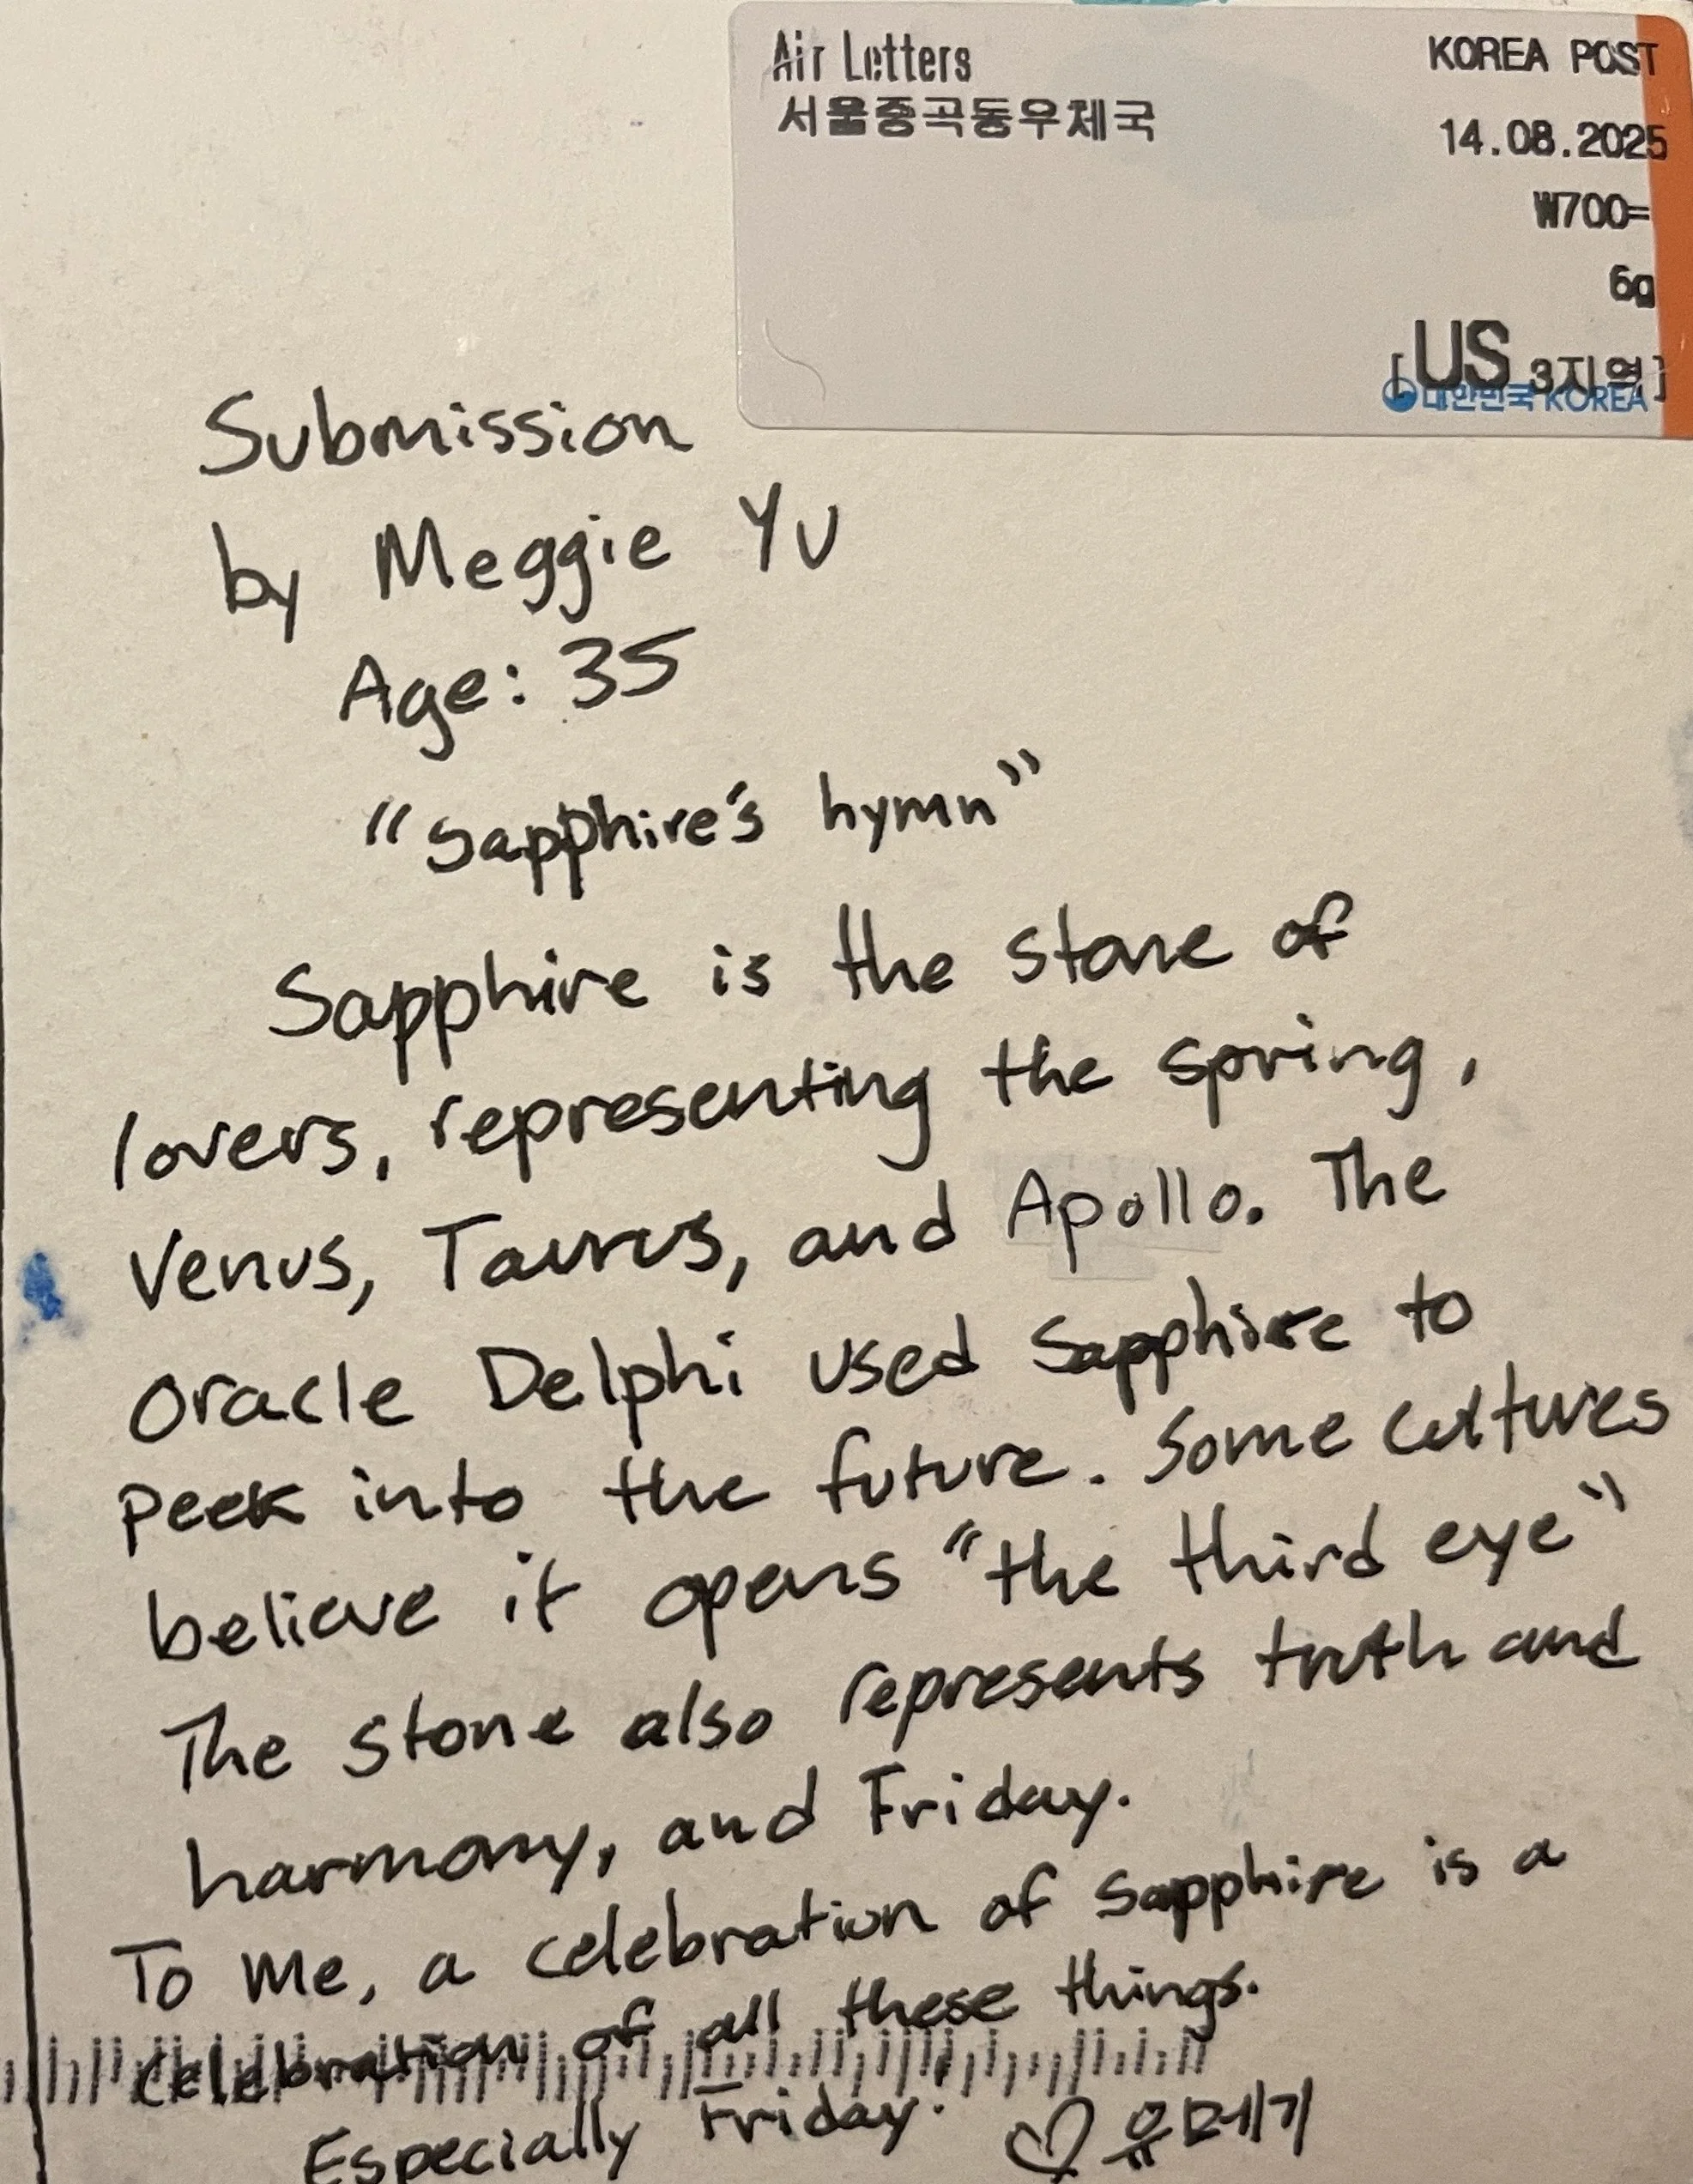 Air Letters
서울중곡동우체국
KOREA POST
14.08.2025
₩700=
6g
[US 3지역]
대한민국 KOREA
Submission
by Meggie Yu
Age: 35
"Sapphire's hymn"
Sapphire is the stone of
lovers, representing the spring,
Venus, Taurus, and Apollo. The
Oracle Delphi used Sapphire to
peek into the future. Some cultures
believe it opens "the third eye"
The stone also represents truth and
harmony, and Friday.
To me, a celebration of sapphire is a
celebration of all these things.
Especially Friday! ♡ 유메기